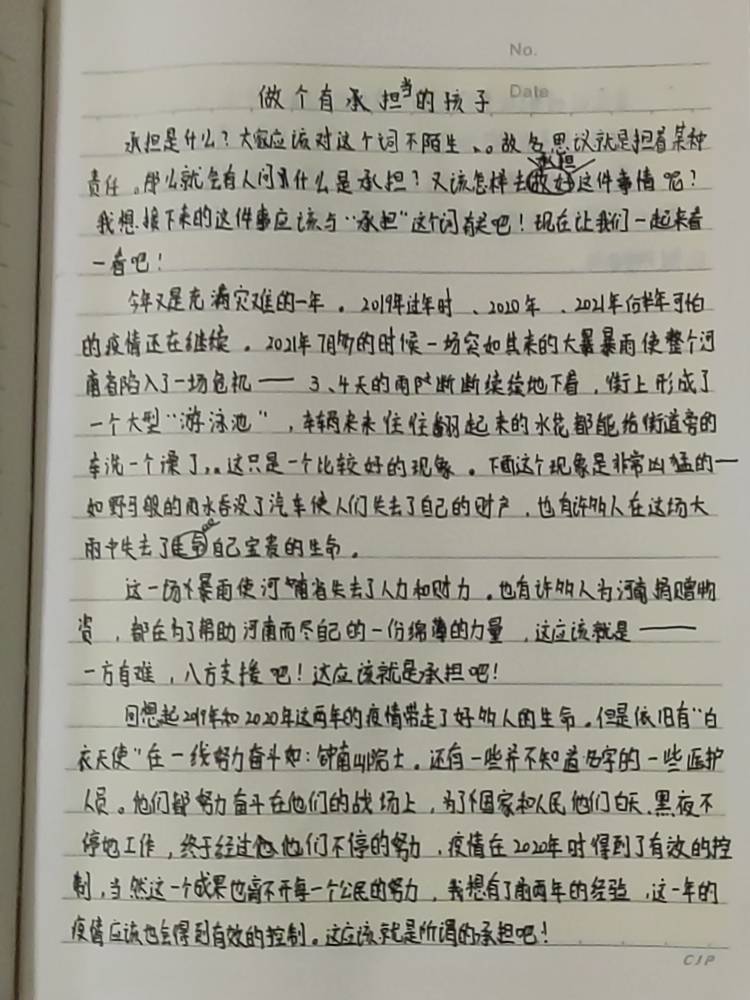 No.
Date
做个有承担当的孩子
承担是什么?大家应该对这个词不陌生、。故名思议就是担着某种
承担
责任。那么就会有人问什么是承担?又该怎样去做好这件事情呢?
我想接下来的这件事应该与“承担”这个词有关吧!现在让我们一起来看
一看吧!
今年又是充满灾难的一年。2019年过年时、2020年、2021年的半年可怕
的疫情还在继续。2021年7月份的时候一场突如其来的大暴暴雨使整个河
南省陷入了一场危机——3、4天的雨断断续续地下着,街上形成了
一个大型“游泳池”,车辆来来住住翻起来的水花都能给街道旁的
车洗一个澡了,。这只是一个比较好的现象。下面这个现象是非常凶猛的一
如野马般的雨水吞没了汽车使人们失去了自己的财产,也有许多人在这场大
雨中失去了自己宝贵的生命。
这一场暴雨使河南省失去了人力和财力。也有许多人为河南捐赠物
资,都在为了帮助河南而尽自己的一份绵薄的力量,这应该就是——
一方有难,八方支援吧!这应该就是承担吧!
回想起2019年和2020年这两年的疫情带走了好多人的生命。但是依旧有“白
衣天使”在一线努力奋斗如:钟南山院士。还有一些并不知道名字的一些医护
人员。他们都努力奋斗在他们的战场上,为了国家和人民他们白天、黑夜不
停地工作,终于经过他们不停的努力,疫情在2020年时得到了有效的控
制,当然这一个成果也离不开每一个公民的努力,我想有了前两年的经验,这一年的
疫情应该也会得到有效的控制。这应该就是所谓的承担吧!
CJP